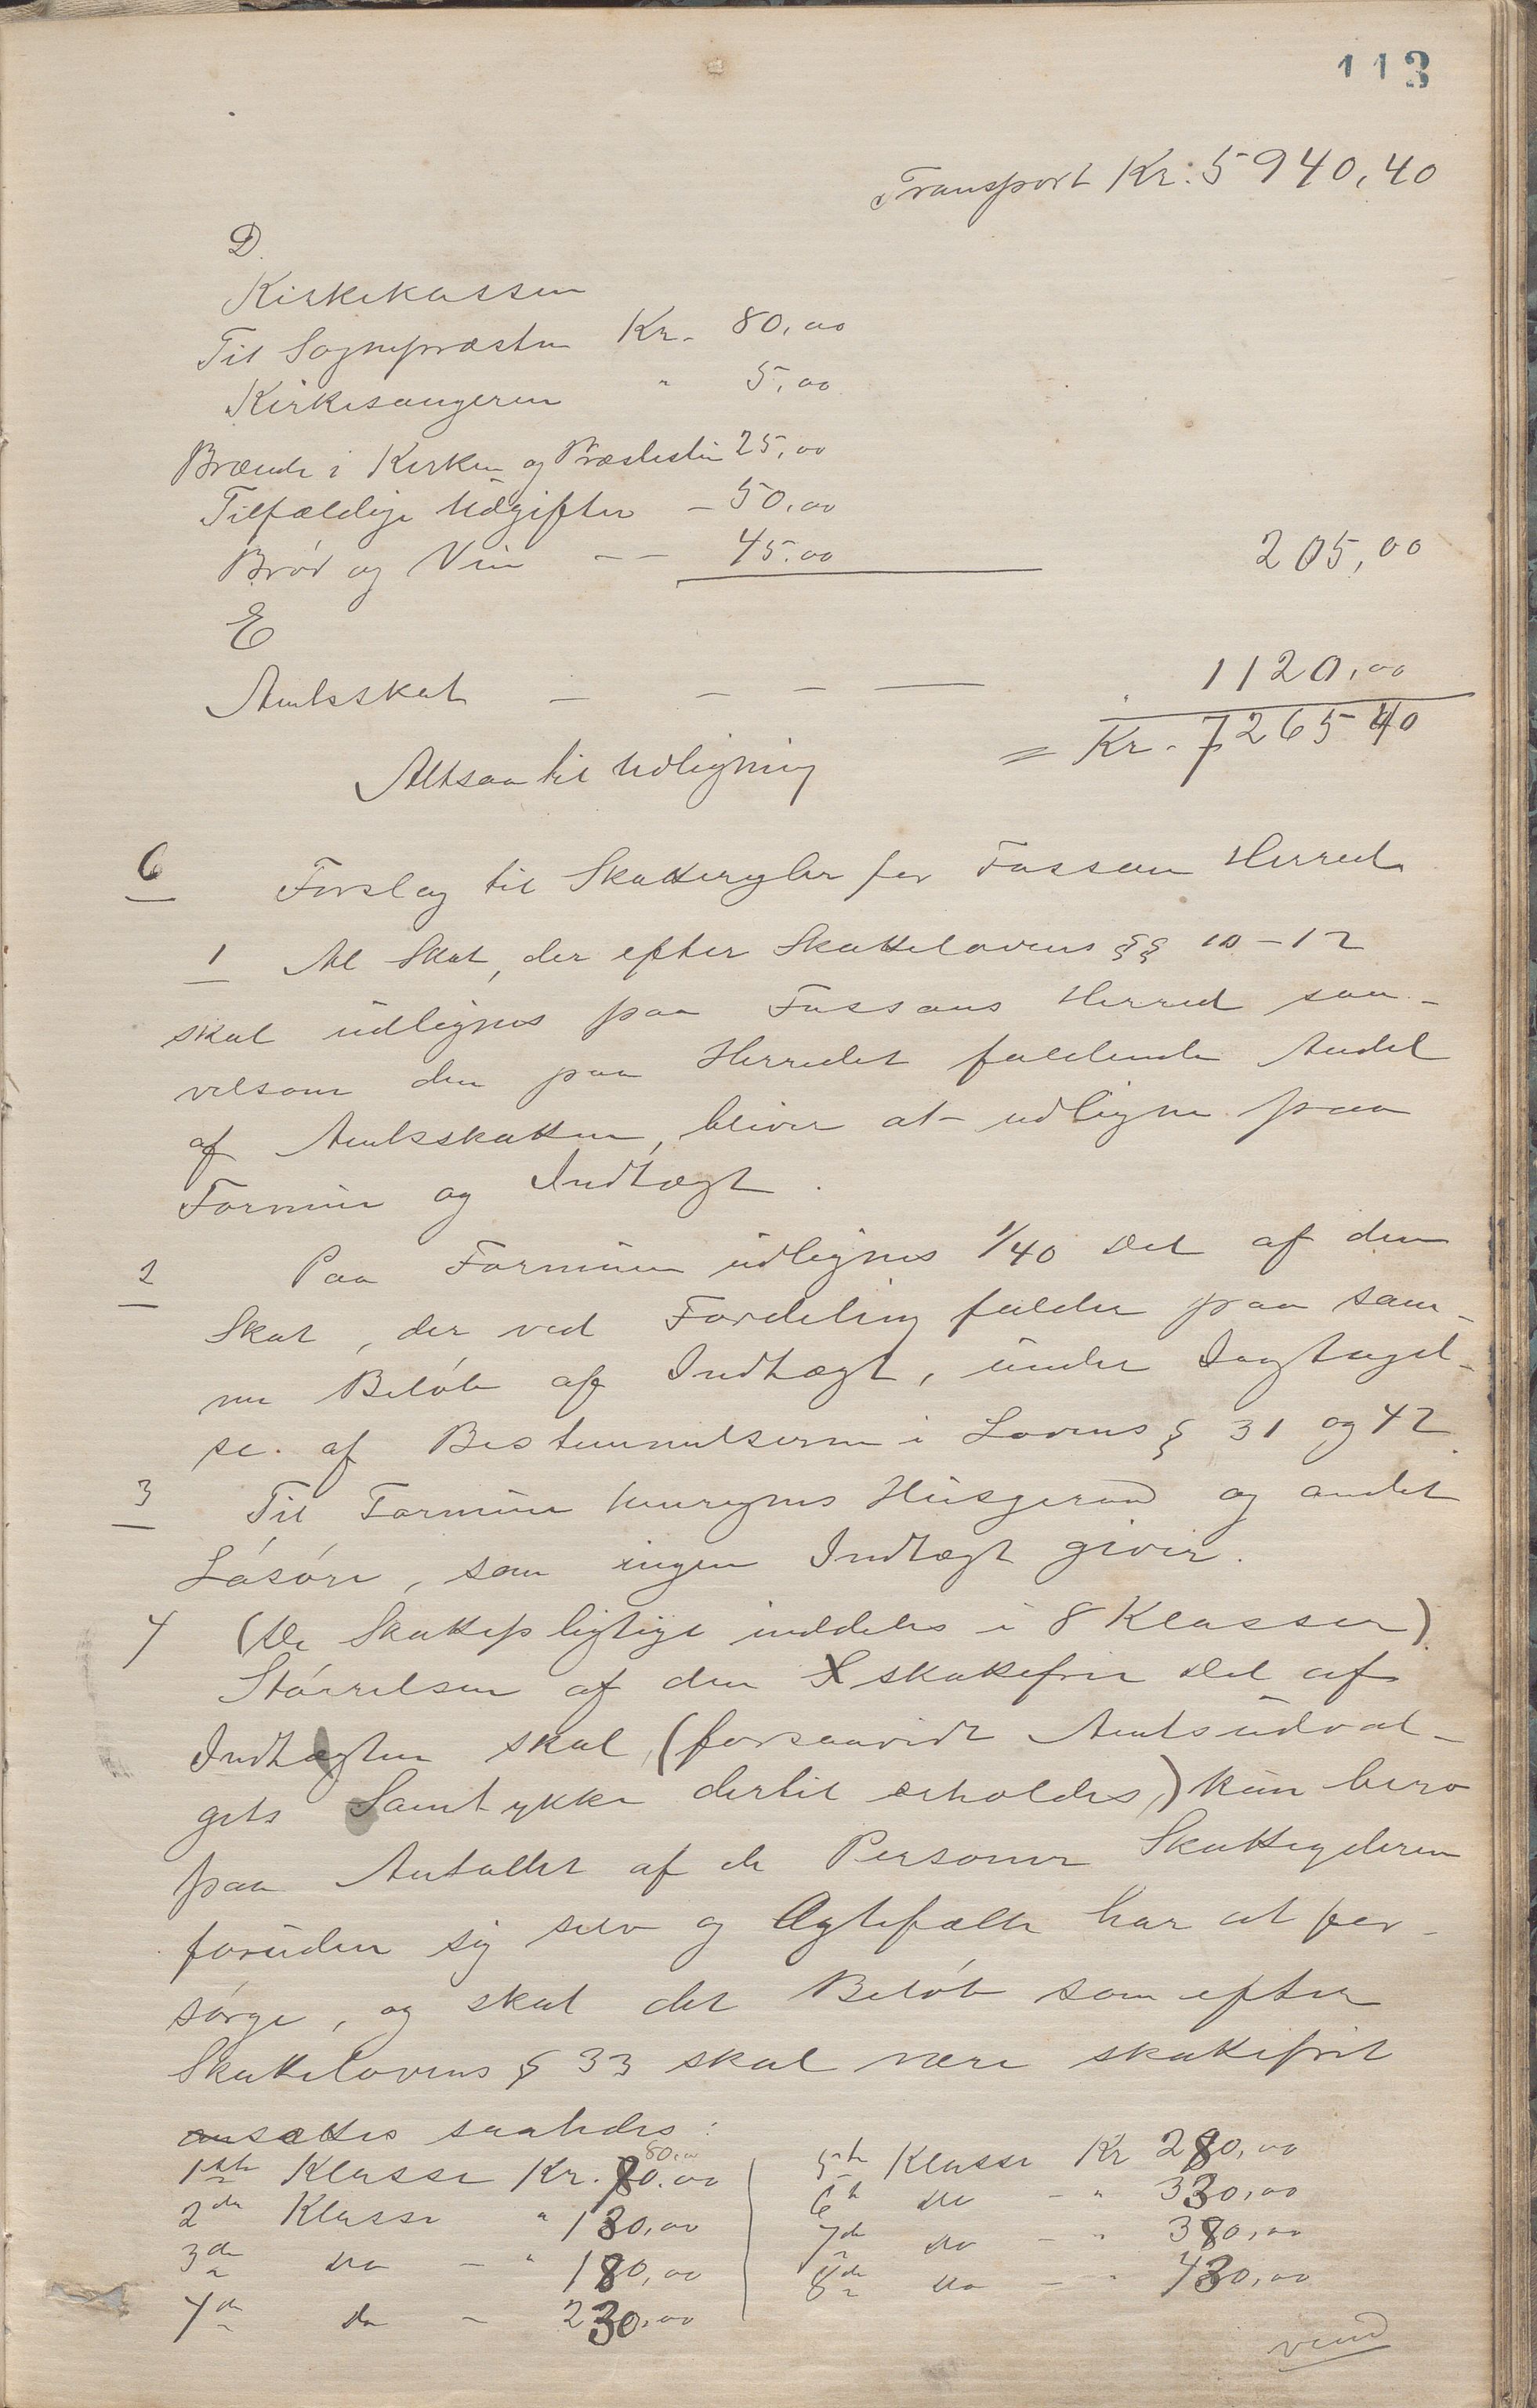 113
Transport Kr. 5940,40
D.
Kirkekassen
Til Sognepræsten Kr. 80,00
Kirkesangeren " 5,00
Brænde i Kirken og Præstestun 25,00
Tilfældige Udgifter - 50,00
Brød og Vin - - 45.00 205,00
E
Amtsskat - - - - 1120,00
Altsaa til Udligning = Kr. 7265 40
6 Forslag til Skatteregler for Fossan Herred
1 Al Skat, der efter Skattelovens §§ 10-12
skal udlignes paa Fossans Herred saa-
velsom den paa Herredet faldende Andel
af Amtsskatten, bliver at udligne paa
Formue og Indtægt.
2 Paa Formuen udlignes 1/40 Del af den
Skat, der ved Fordeling falder paa sam-
me Beløb af Indtægt, under Iagttagel-
se af Bestemmelserne i Lovens § 31 og 42.
3 Til Formue henregnes Husgeraad og andet
Løsøre, som ingen Indtægt giver.
4 (De Skattepligtige inddeles i 8 Klasser)
Størrelsen af den skattefrie Del af
Indtægten skal, (forsaavidt Amtsudval-
gets Samtykke dertil erholdes,) kun bero
paa Antallet af de Personer Skatteyderen
foruden sig selv og Ægtefælle har at for-
sørge, og skal det Beløb som efter
Skattelovens § 33 skal være skattefrit
ansættes saaledes:
80,00
1ste Klasse Kr. 80.00 5te Klasse Kr 280,00
2den Klasse " 130,00 6te do - " 330,00
3die do - " 180,00 7de do - " 380,00
4de do - 230,00 8de do - " 430,00
vend